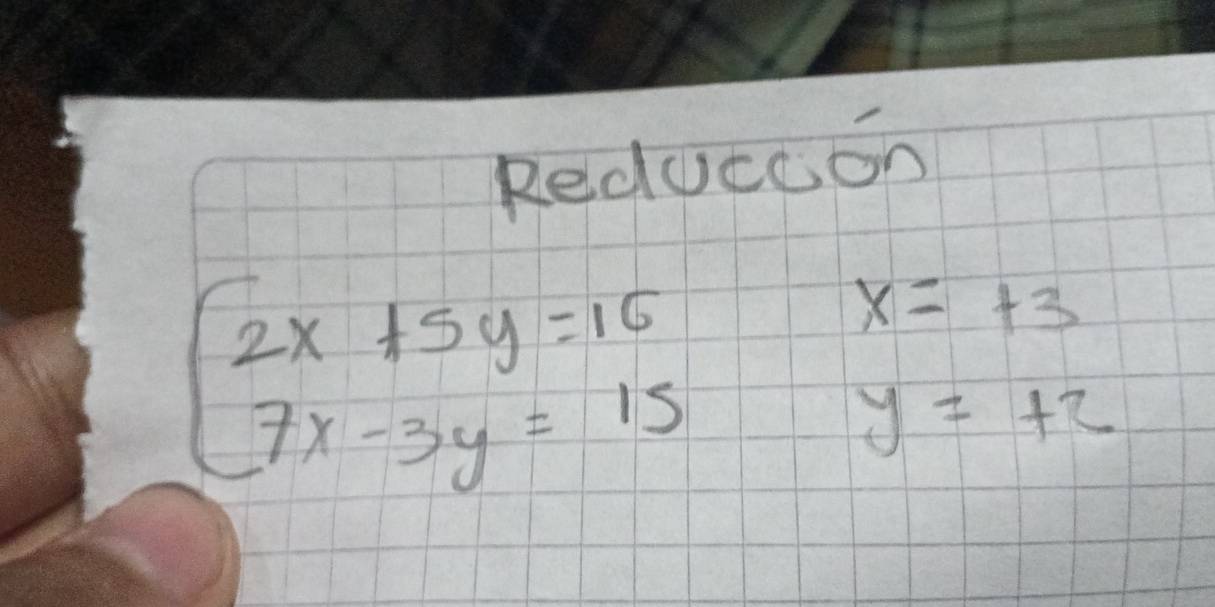 Reducción
2x + 5y = 16 x = +3
7x - 3y = 15 y = +2